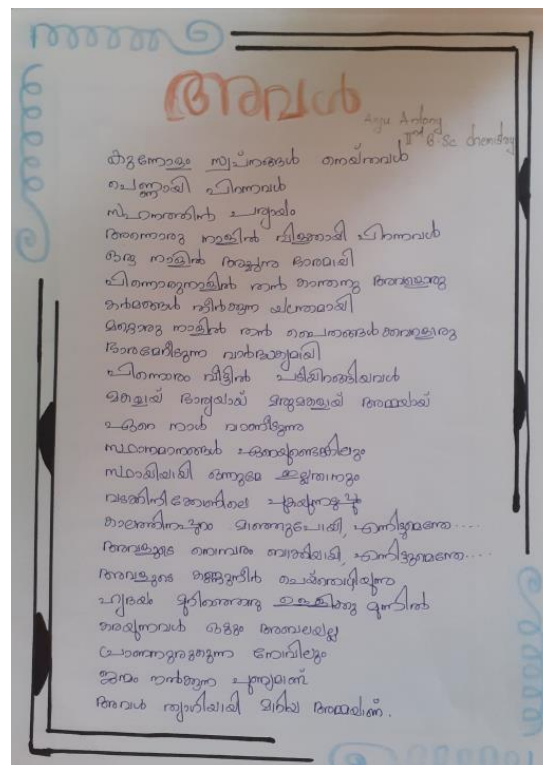 അവൾ
Anju Antony
IInd B.Sc chemistry
കുന്നോളം സ്വപ്നങ്ങൾ നെയ്തവൾ
പെണ്ണായി പിറന്നവൾ
സഹനത്തിൻ പര്യായം
അന്നൊരു നാളിൻ വിളക്കായി പിറന്നവൾ
ഒരു നാളിൽ അച്ഛനു ഭാരമായി
പിന്നൊരുനാളിൽ തൻ കാന്തനു അവളൊരു
കർമ്മങ്ങൾ തീർക്കുന്ന യന്ത്രമായി
മറ്റൊരു നാളിൽ തൻ പൈതങ്ങൾക്കവളൊരു
ഭാരമേറീടുന്ന വാർദ്ധക്യമായി
പിന്നൊരാ വീട്ടിൻ പടിയിറങ്ങിയവൾ
മകളായ് ഭാര്യയായ് മരുമകളായ് അമ്മയായ്
ഏറെ നാൾ വാണീടുന്നു
സ്ഥാനമാനങ്ങൾ ഏറെയുണ്ടെങ്കിലും
സ്ഥായിയായി ഒന്നുമേ ഇല്ലതാനും
വടക്കിനിക്കോണിലെ പുകയുന്നടുപ്പും
കാലത്തിനപ്പുറം മാഞ്ഞുപോയി, എന്നിട്ടുമെന്തേ....
അവളുടെ നൊമ്പരം ബാക്കിയായി, എന്നിട്ടുമെന്തേ....
അവളുടെ കണ്ണുനീർ പെയ്തൊഴിയുന്നു
ഹൃദയം മുറിഞ്ഞൊരു ഉള്ളിക്കു മുന്നിൽ
കരയുന്നവൾ ഒട്ടും അബലയല്ല
പ്രാണനുരുകുന്ന നോവിലും
ജന്മം നൽകുന്ന പുണ്യമാണ്
അവൾ ത്യാഗിയായി മാറിയ അമ്മയാണ്.